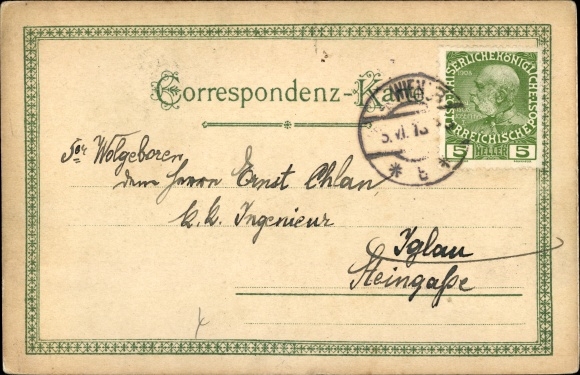 Correspondenz-Karte
KAISERLICHE KÖNIGLICHE ÖSTERREICHISCHE POST
5 HELLER 5
WIEN
5. VI.
* 6 *
Sr. Wolgeboren
dem Herrn Ernst Chlan,
k. k. Ingenieur
Iglau
Steingaße